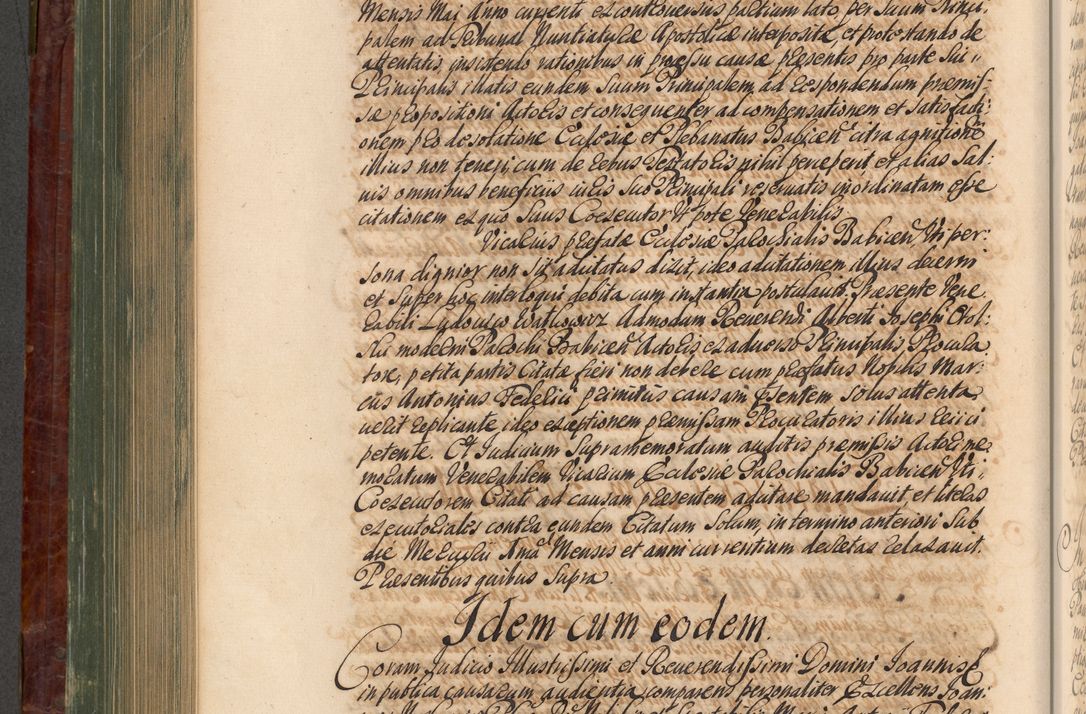 Mensis Maj Anno currenti et controversus pactium lato, per Suum Princi,
palem ad Tribunal Nuntiaturæ Apostolicæ interposita, et protestando de
attentatis insidendo rationibus in processu causæ præsentis pro parte Sui
Principalis illatis eundem Suum Principalem, ad respondendum præmis,
sæ propositioni Actoris et consequenter ad compensationem et satisfacti,
onem pro desolatione Ecclesiæ et Plebanatus Babicen citra agnitione
illius non teneri, cum de rebus Testatoris nihil perceperit, et alias Sal,
vis omnibus beneficiis iuris Suo Principali reservatis inordinatam esse
citationem ex quo Suus Coexecutor Ut pote Venerabilis
Vicarius præfatæ Ecclesiæ Parochialis Babicen Uti per,
sona dignior non sit adcitatus dixit, ideo adcitationem illius decerni
et Super hoc interloqui debita cum instantia postulavit. Præsente Vene
rabili Ludovico Watkowicz Admodum Reverendi Alberti Josephi
moderni Parochi Babicen Actoris ex adverso Principalis Procura
tore, petita partis Citatæ fieri non debere cum præfatus Nobilis Mar,
cus Antonius Federici primitus causam præsentem Solus attenta,
verit replicante ideo exceptionem præmissam Procuratoris illius reiici
petente. Et Judicium Supramemoratum auditis præmissis Actori me
moratum Venerabilem Vicarium Ecclesiæ Parochialis Babicen Uti
Coexecutorem Citati ad causam præsentem adcitare mandavit et literas
executoriales contra eundem Citatum Solum, in termino anteriori Sub
die Mercurii Mensis et anni currentium decretas relaxavit.
Præsentibus quibus Supra.
Idem cum eodem.
Coram Judicio Illustrissimi et Reverendissimi Domini Joannis
in publica causarum audientia comparens personaliter Excellens Joan,